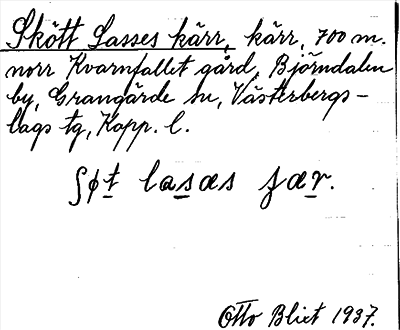 Skött Lasses kärr, kärr, 700 m.
norr Kvarnfallet gård, Björndalen
by, Grangärde sn, Västerbergs-
lags tg, Kopp. l.
ʃɸt lasæs ʃær.
Otto Blixt 1937.